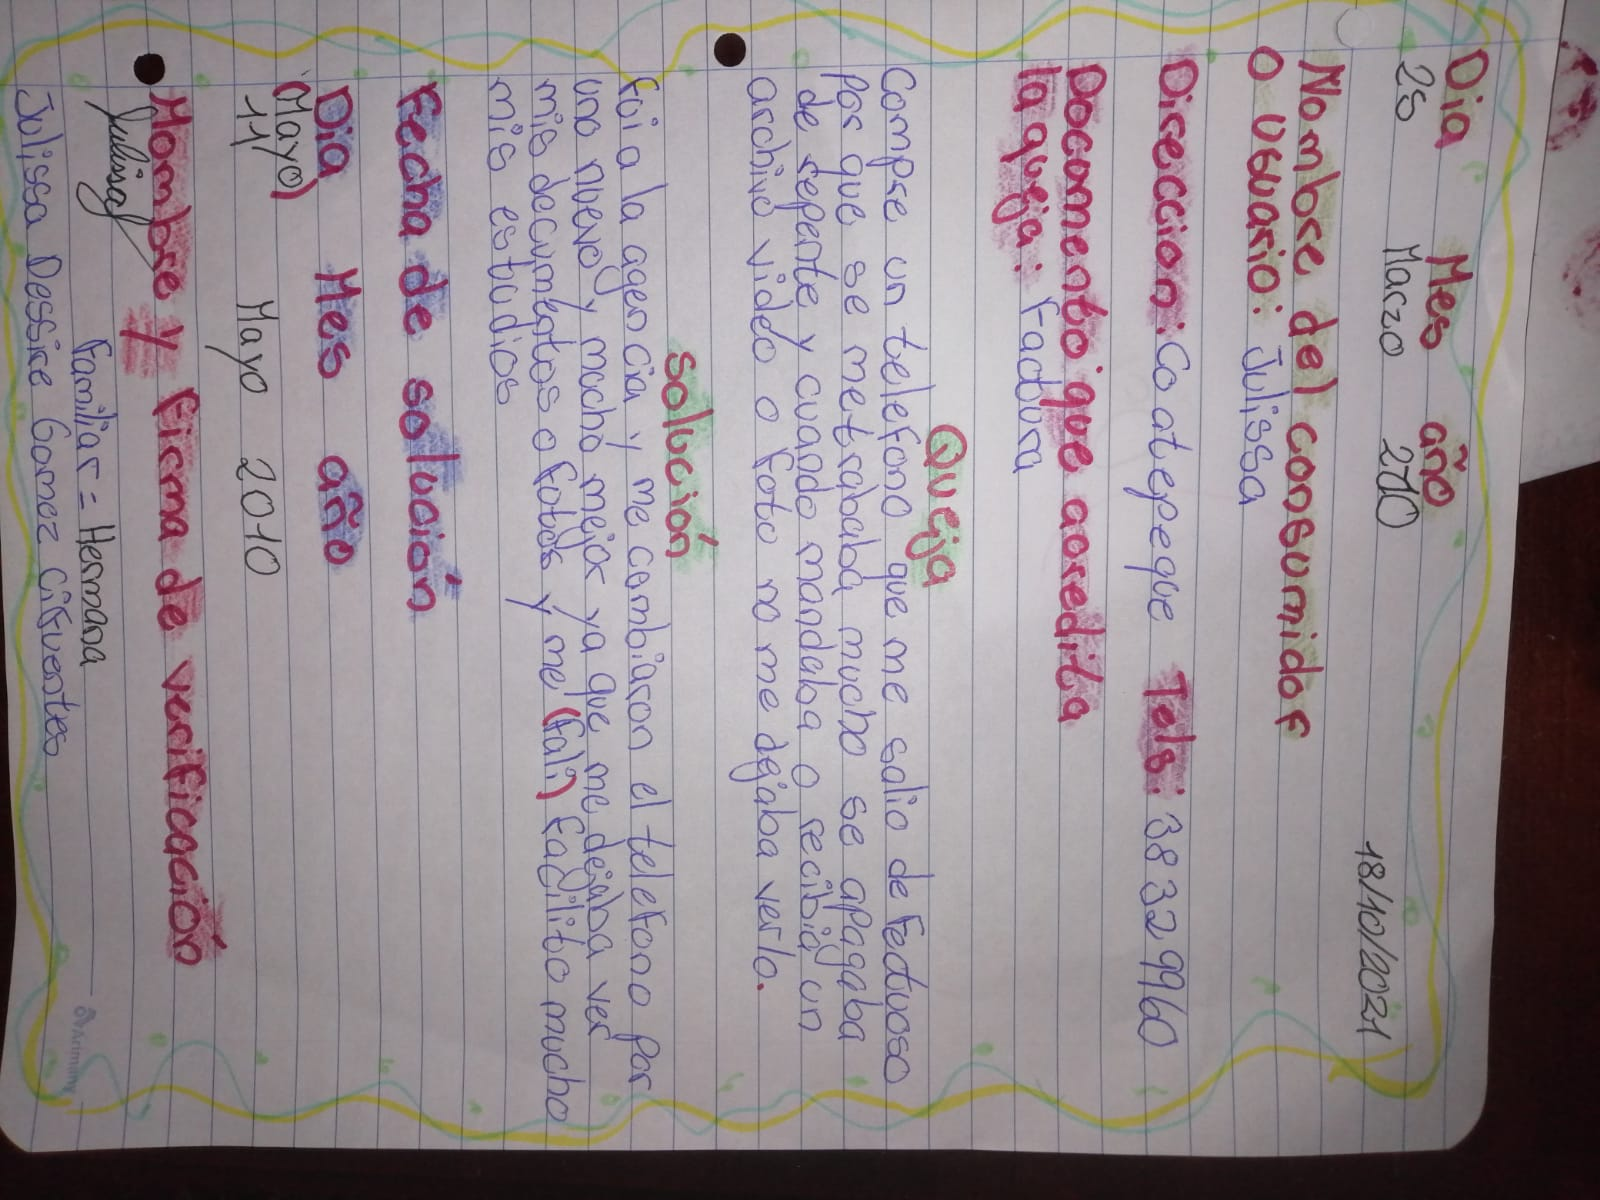 Dia Mes año
25 Marzo 2010
18/10/2021
Nombre del consumidor
o Usuario: Julissa
Direccion: Coatepeque Tels: 38329960
Documento que acredita
la queja: Factura
Queja
Compre un telefono que me salio defectuoso
por que se me trababa mucho se apagaba
de repente y cuando mandaba o recibia un
archivo video o foto no me dejaba verlo.
solución
Fui a la agencia y me cambiaron el telefono por
uno nuevo y mucho mejor ya que me dejaba ver
mis documentos o fotos y me (fali) facilito mucho
mis estudios
Fecha de solución
Dia Mes año
(Mayo)
11 Mayo 2010
Nombre y Firma de verificación
Julissa
Familiar = Hermana
Julissa Dessire Gomez Cifuentes
Arimany